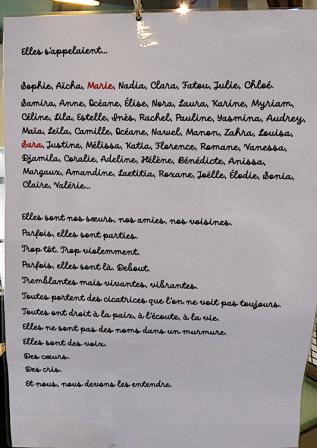 Elles s'appelaient...
Sophie, Aïcha, Marie, Nadia, Clara, Fatou, Julie, Chloé.
Samira, Anne, Océane, Élise, Nora, Laura, Karine, Myriam,
Céline, Lila, Estelle, Inès, Rachel, Pauline, Yasmina, Audrey,
Maïa, Leïla, Camille, Océane, Nawel, Manon, Zahra, Louisa,
Sara, Justine, Mélissa, Katia, Florence, Romane, Vanessa,
Djamila, Coralie, Adeline, Hélène, Bénédicte, Anissa,
Margaux, Amandine, Laetitia, Roxane, Joëlle, Élodie, Sonia,
Claire, Valérie...
Elles sont nos sœurs, nos amies, nos voisines.
Parfois, elles sont parties.
Trop tôt. Trop violemment.
Parfois, elles sont là. Debout.
Tremblantes mais vivantes, vibrantes.
Toutes portent des cicatrices que l'on ne voit pas toujours.
Toutes ont droit à la paix, à l'écoute, à la vie.
Elles ne sont pas des noms dans un murmure.
Elles sont des voix.
Des cœurs.
Des cris.
Et nous, nous devons les entendre.